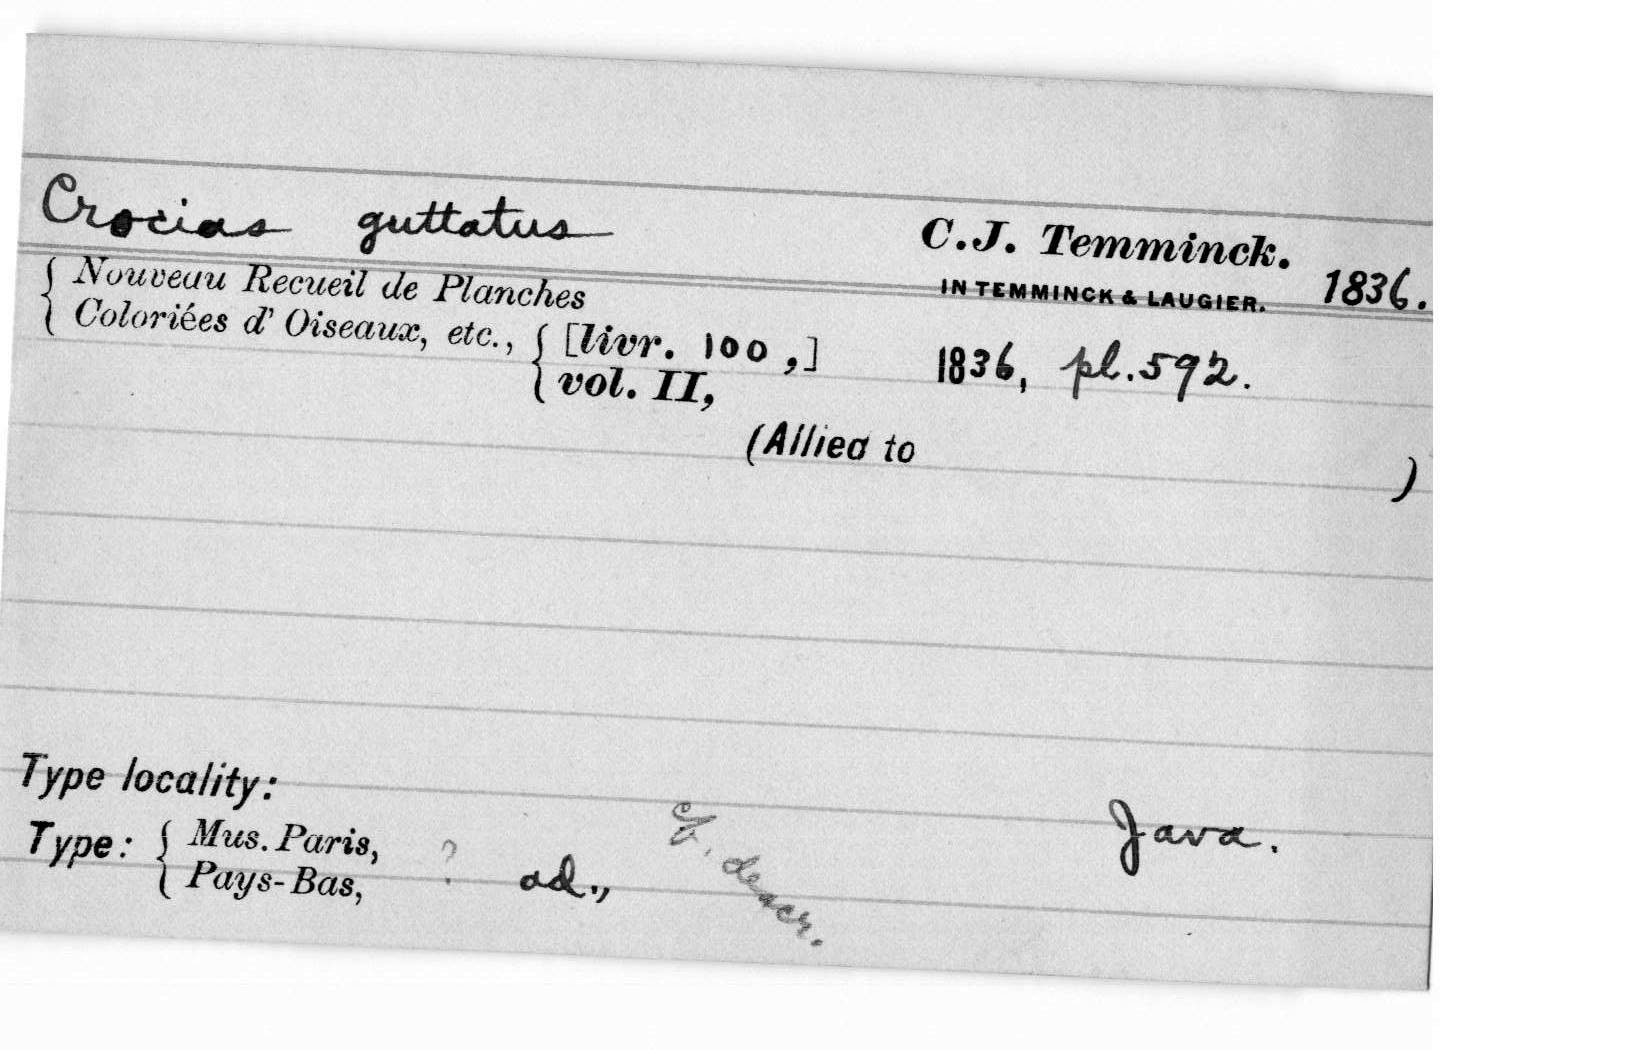 Crocias guttatus C.J. Temminck.
IN TEMMINCK & LAUGIER. 1836.
{ Nouveau Recueil de Planches
{ Coloriées d' Oiseaux, etc., { [livr. 100 ,] 1836, pl. 592.
{ vol. II,
(Allied to )
Type locality:
Java.
Type: { Mus. Paris,
{ Pays-Bas, ? ad.,
descr.